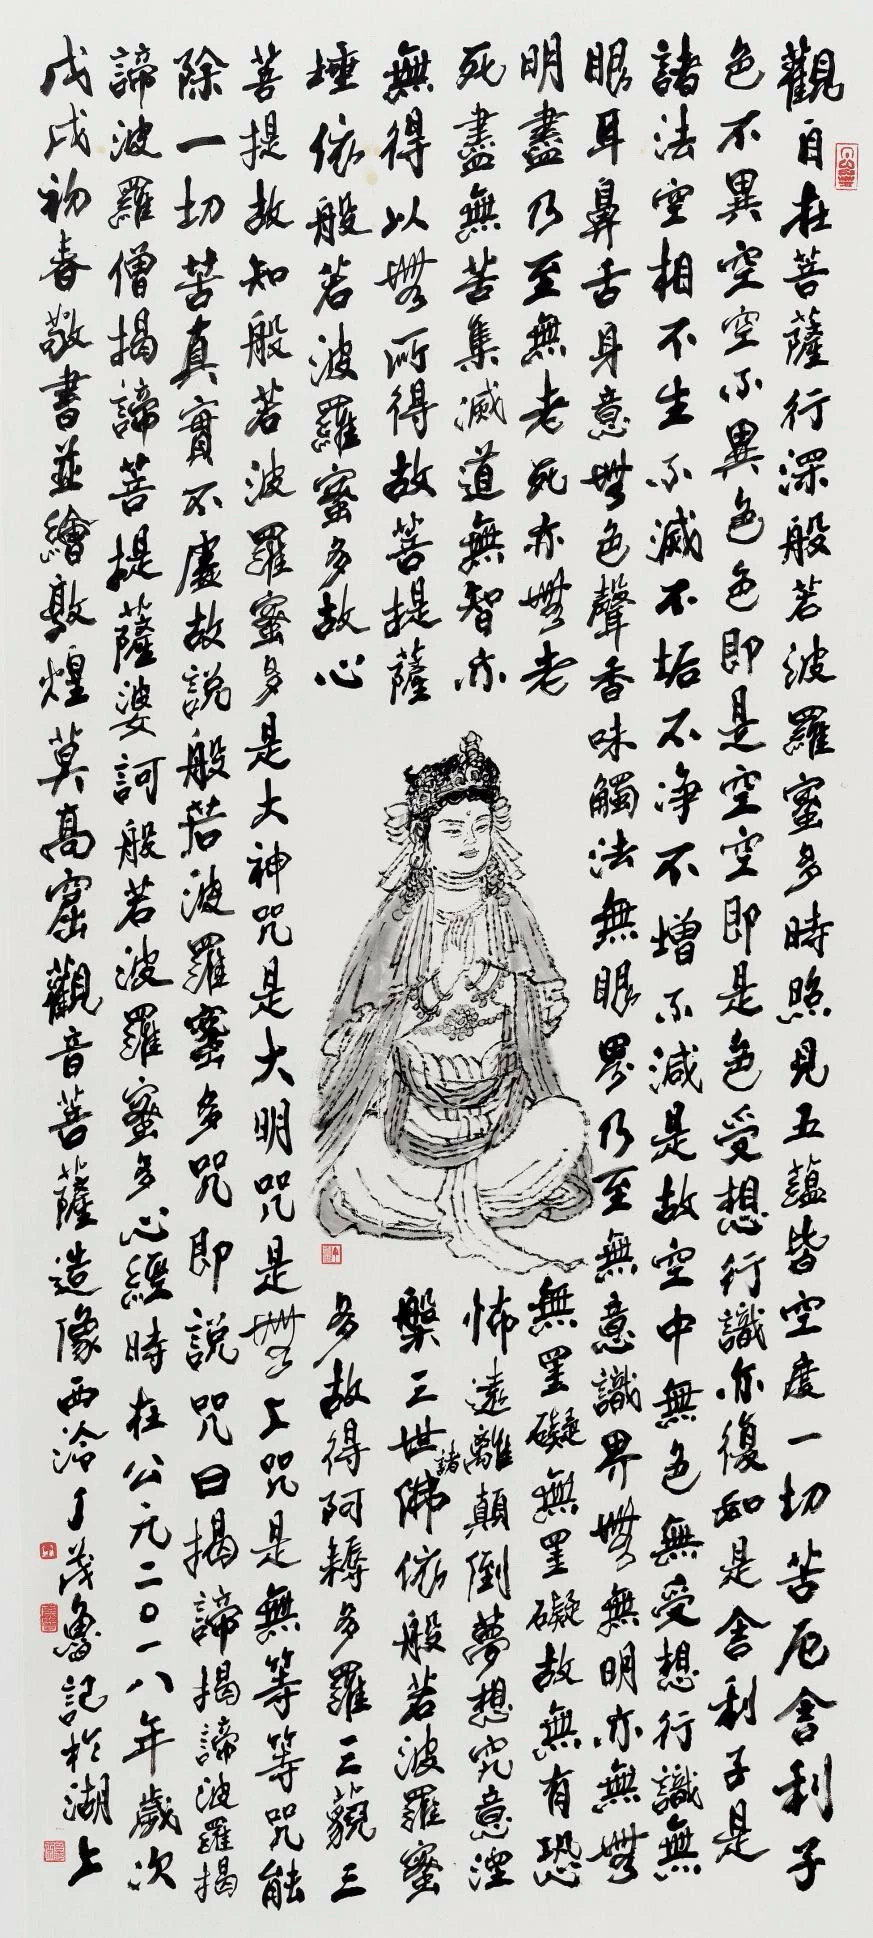 觀自在菩薩行深般若波羅蜜多時照見五蘊皆空度一切苦厄舍利子
色不異空空不異色色即是空空即是色受想行識亦復如是舍利子是
諸法空相不生不滅不垢不净不增不減是故空中無色無受想行識無
眼耳鼻舌身意無色聲香味觸法無眼界乃至無意識界無無明亦無無
明盡乃至無老死亦無老
死盡無苦集滅道無智亦
無得以無所得故菩提薩
埵依般若波羅蜜多故心
無罣礙無罣礙故無有恐
怖遠離顛倒夢想究意涅
槃三世諸佛依般若波羅蜜
多故得阿耨多羅三藐三
菩提故知般若波羅蜜多是大神咒是大明咒是無上咒是無等等咒能
除一切苦真實不虛故說般若波羅蜜多咒即說咒曰揭諦揭諦波羅揭
諦波羅僧揭諦菩提薩婆訶般若波羅蜜多心經時在公元二〇一八年歲次
戊戌初春敬書並繪敦煌莫高窟觀音菩薩造像西泠丁茂魯記於湖上